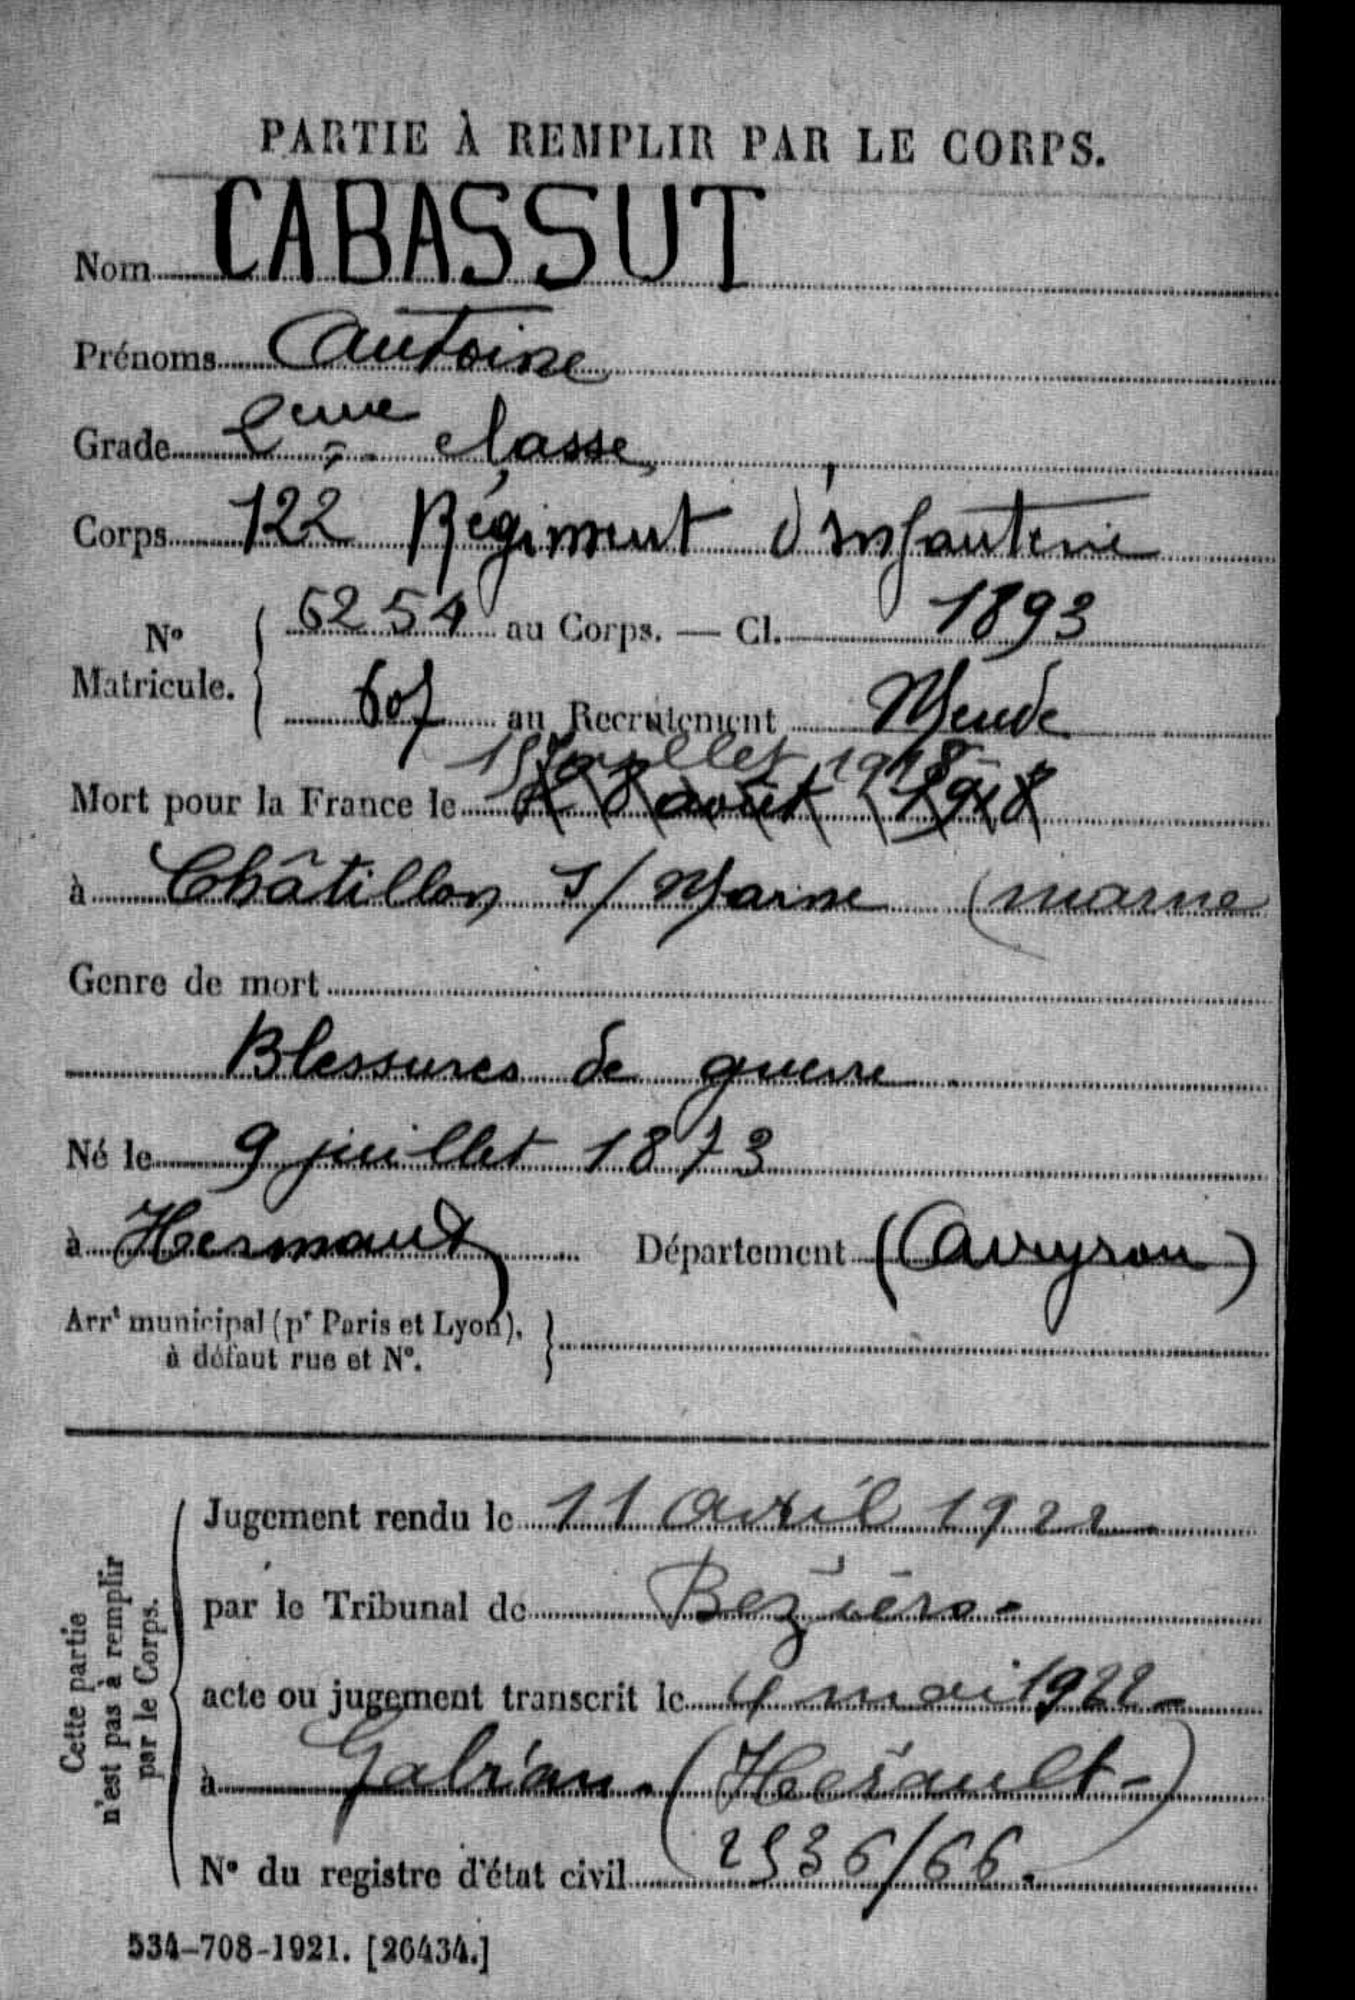 PARTIE À REMPLIR PAR LE CORPS.
Nom CABASSUT
Prénoms Antoine
Grade 2eme classe
Corps 122 Régiment d'infanterie
N° Matricule. 6254 au Corps. — Cl. 1893
607 au Recrutement Mende
15 juillet 1918
Mort pour la France le août 1918
à Châtillon s/ Marne (marne
Genre de mort
Blessures de guerre
Né le 9 juillet 1873
à Hermaux Département (Aveyron)
Arrt municipal (pr Paris et Lyon),
à défaut rue et N°.
Cette partie
n'est pas à remplir
par le Corps.
Jugement rendu le 11 avril 1922
par le Tribunal de Beziers-
acte ou jugement transcrit le 4 mai 1922-
à Gabrian. (Hérault-)
N° du registre d'état civil 2536/66.
534-708-1921. [26434.]